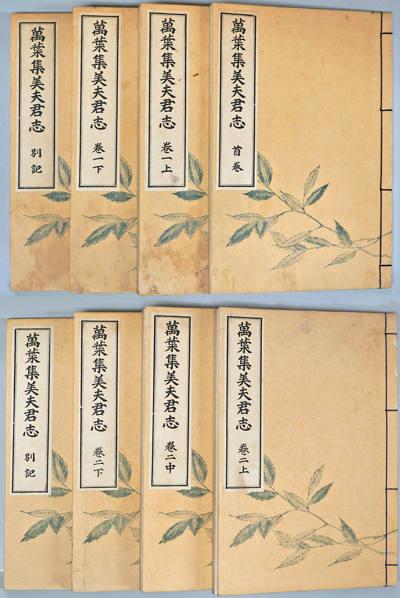 萬葉集美夫君志
首巻
萬葉集美夫君志
巻一上
萬葉集美夫君志
巻一下
萬葉集美夫君志
別記
萬葉集美夫君志
巻二上
萬葉集美夫君志
巻二中
萬葉集美夫君志
巻二下
萬葉集美夫君志
別記